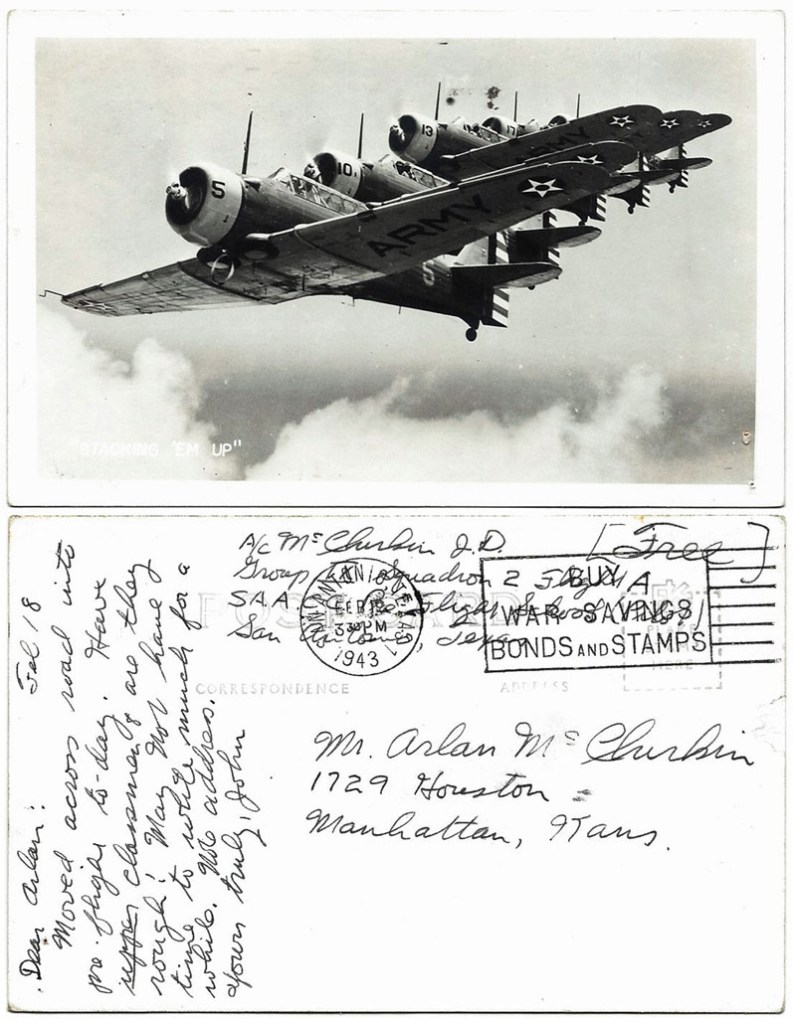 5
10
13
17
ARMY
ARMY
5
"STACKING 'EM UP"
A/c McClurkin J.D.
Group Squadron 2 Flight A
S.A.A.C.C. Pre Flight School
San Antonio, Texas
[Free]
SAN ANTONIO
FEB 19
3 30 PM
1943
TEXAS
BUY
WAR SAVINGS
BONDS AND STAMPS
POST CARD
PLACE
HERE
CORRESPONDENCE
ADDRESS
Mr. Arlan McClurkin
1729 Houston
Manhattan, Kans.
Feb 18
Dear Arlan:
Moved across road into
pre-flight to-day. Have
upper classmen & are they
rough! May not have
time to write much for a
while. Note address.
Yours truly, John